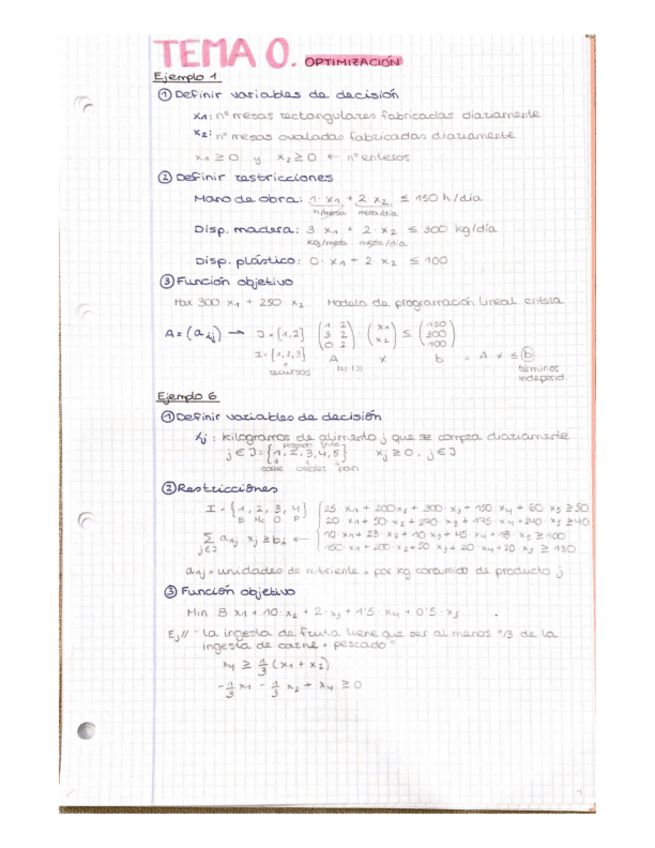 TEMA 0. OPTIMIZACIÓN
Ejemplo 1
① Definir variables de decisión
x1: nº mesas rectangulares fabricadas diariamente
x2: nº mesas ovaladas fabricadas diariamente
x1 ≥ 0 y x2 ≥ 0 ← nº enteros
② Definir restricciones
Mano de obra: 1· x1 + 2· x2 ≤ 150 h/día
h/mesa mesa/día
Disp. madera: 3 x1 + 2· x2 ≤ 300 kg/día
kg/mesa mesa/día
Disp. plástico: 0· x1 + 2· x2 ≤ 100
③ Función objetivo
Max 300 x1 + 250· x2 Modelo de programación lineal entera
A = (aij) → J = {1,2} (1 2 3 2 0 2) · (x1 x2) ≤ (150 300 100)
I = {1,2,3} A x b = A x ≤ b
recursos términos
independ
Ejemplo 6
① Definir variables de decisión
xj : kilogramos de alimento j que se compra diariamente
pescado fruta
j ∈ J = {1, 2, 3, 4, 5} xj ≥ 0, j ∈ J
carne pan
② Restricciones
I = {1, 2, 3, 4} 25 x1 + 200x2 + 300· x3 + 150 x4 + 60 x5 ≥ 50
20· x1 + 50· x2 + 270· x3 + 175· x4 + 240· x5 ≥ 40
∑ aij xj ≥ bi ← 10· x1 + 23· x2 + 10· x3 + 45· x4 + 18· x5 ≥ 100
j∈J 150· x1 + 200· x2 + 50 x3 + 20· x4 + 30· x5 ≥ 130
aij = unidades de nutriente i por kg consumido de producto j
③ Función objetivo
Min 8 x1 + 10· x2 + 2· x3 + 1'5· x4 + 0'5· x5
Ej// "La ingesta de fruta tiene que ser al menos 1/3 de la
ingesta de carne + pescado"
x4 ≥ 1/3 (x1 + x2)
-1/3 x1 - 1/3 x2 + x4 ≥ 0
1